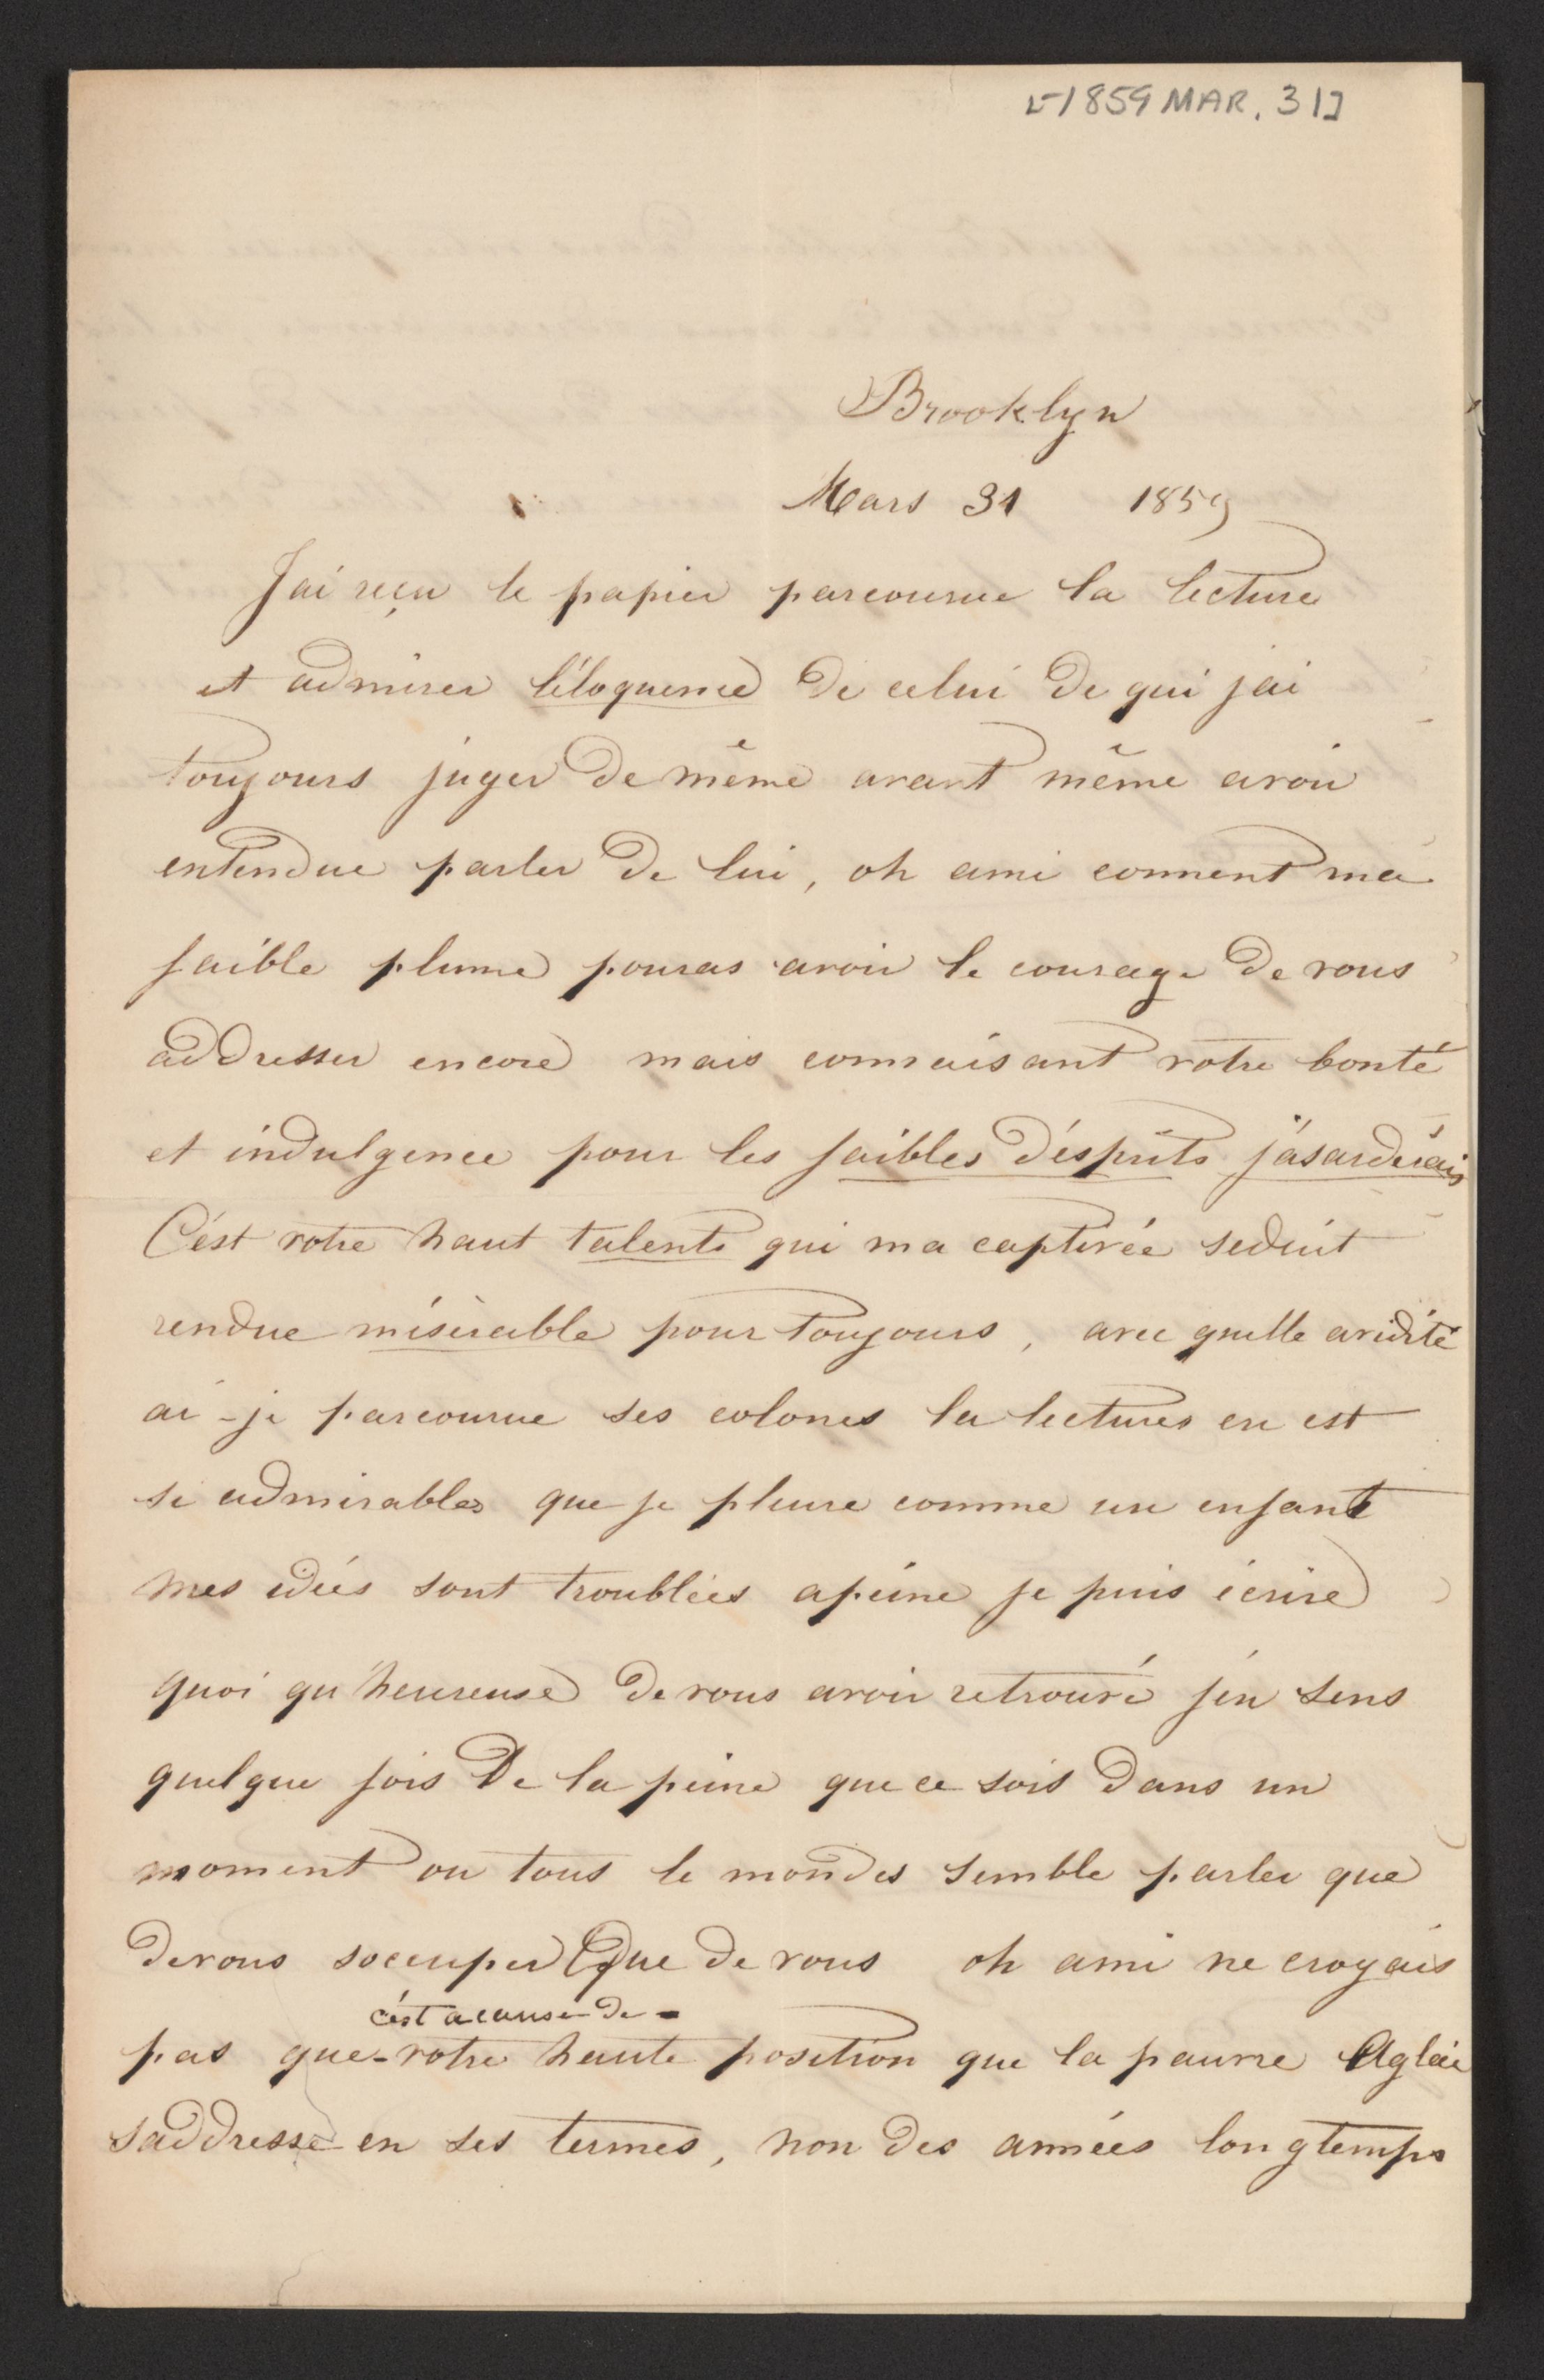 [1859 MAR. 31]
Brooklyn
Mars 31 1859
J'ai reçu le papier parcourue la lecture
et admirer l'éloquence de celui de qui j'ai
toujours juger de même avant même avoir
entendue parler de lui, oh ami comment ma
faible plume pouras avoir le courage de vous
addresser encore mais connaisant votre bonté
et indulgence pour les faibles d'ésprits j'asarderais
C'est votre haut talents qui ma captivée seduit
rendue misèrable pour toujours, avec quelle avidité
ai-je parcourue ses colones la lectures en est
si admirables que je pleure comme un enfant
mes idées sont troublées apeine je puis écrire
quoi qu'heureuse de vous avoir retrouvé j'en sens
quelque fois de la peine que ce sois dans un
moment ou tous le mondes semble parler que
de vous soccuper que de vous oh ami ne croyais
c'est a cause de
pas que votre haute position que la pauvre Aglaé
saddresse en ses termes, non des années longtemps